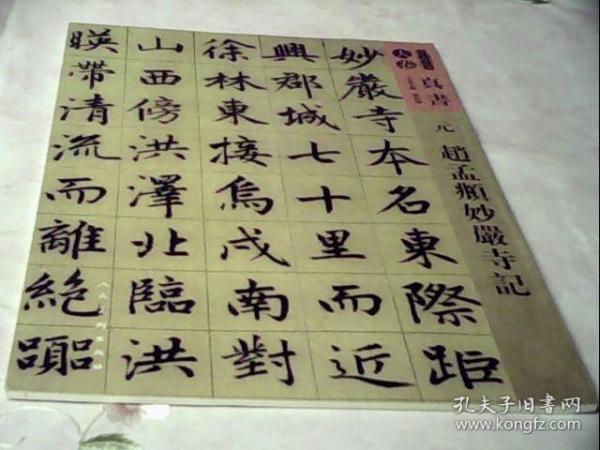 真書
元 趙孟頫妙嚴寺記
妙嚴寺本名東際距
興郡城七十里而近
徐林東接烏戍南對
山西傍洪澤北臨洪
暎帶清流而離絕囂
孔夫子旧書网
www.kongfz.com